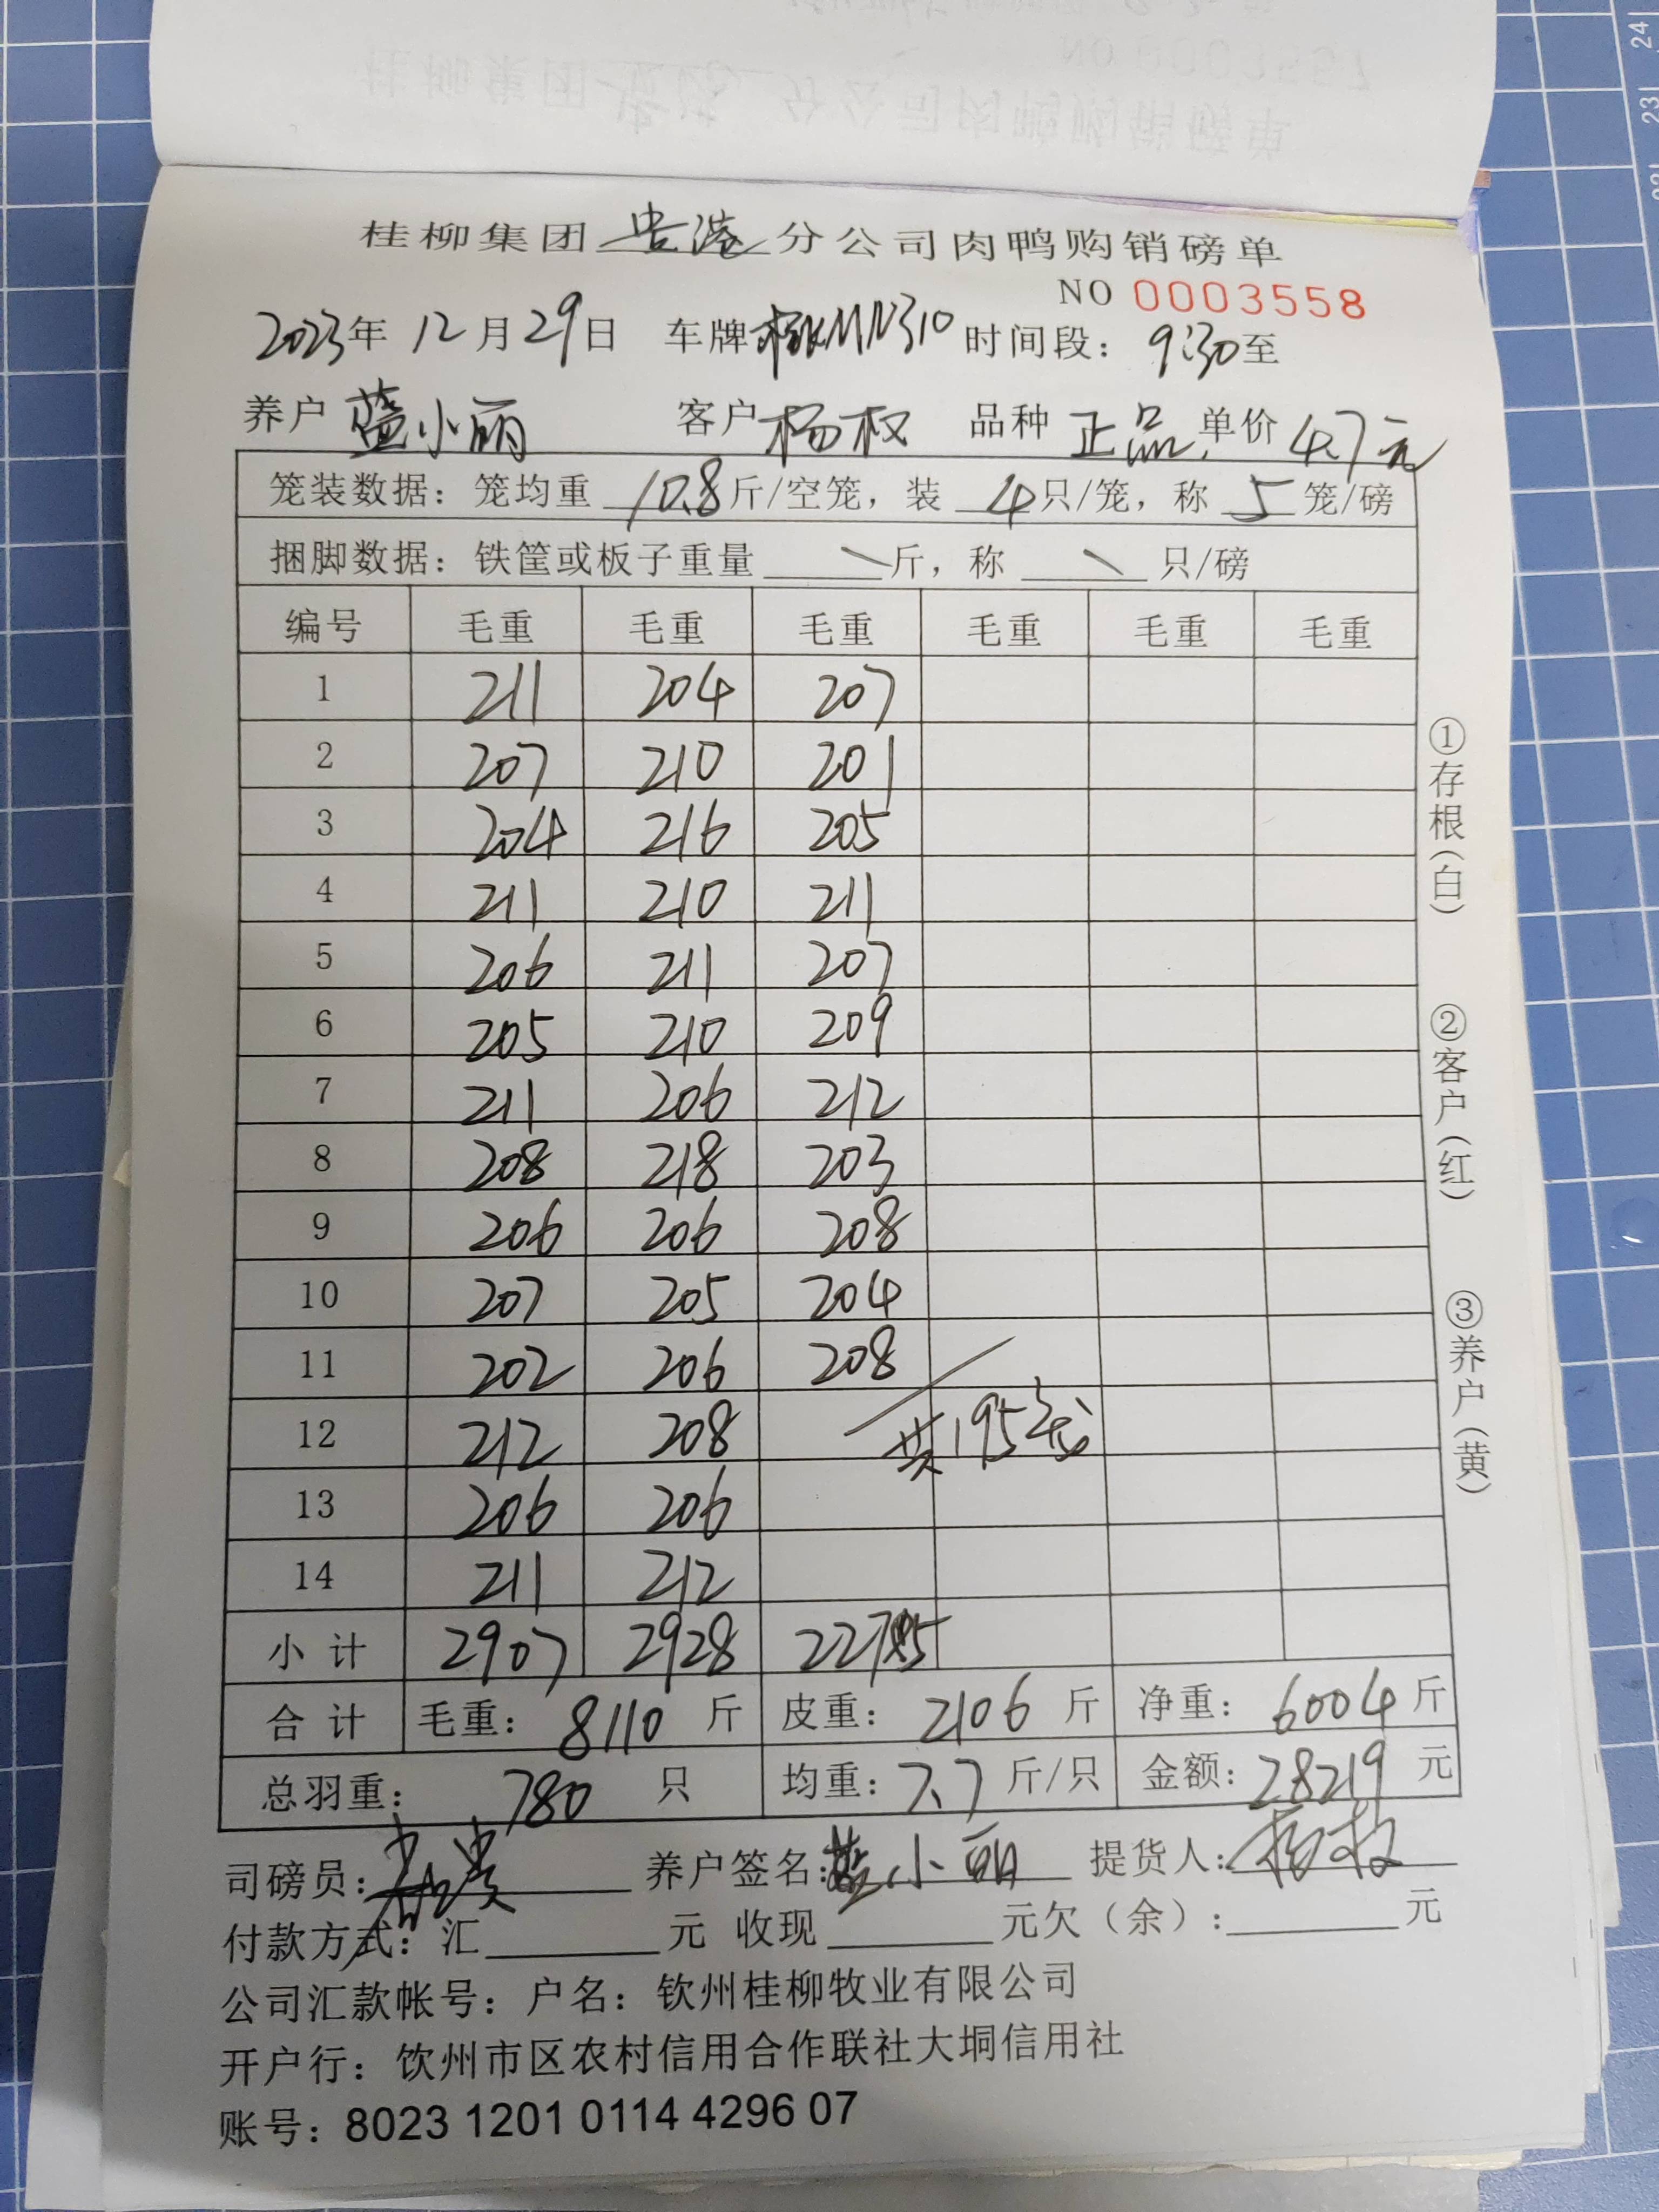 桂柳集团 贵港 分公司肉鸭购销磅单
NO 0003558
2023年 12月29日 车牌 MN310 时间段：9:30至
养户 蓝小丽 客户 杨权 品种 正品 单价 4.7元
笼装数据：笼均重 10.8 斤/空笼，装 4 只/笼，称 5 笼/磅
捆脚数据：铁筐或板子重量 \ 斤，称 \ 只/磅
编号 毛重 毛重 毛重 毛重 毛重 毛重
1 211 204 207
2 207 210 201
3 204 216 205
4 211 210 211
5 206 211 207
6 205 210 209
7 211 206 212
8 208 218 203
9 206 206 208
10 207 205 204
11 202 206 208
12 212 208 共195笼
13 206 206
14 211 212
小计 2907 2928 2275
合计 毛重：8110 斤 皮重：2106 斤 净重：6004 斤
总羽重：780 只 均重：7.7 斤/只 金额：28219 元
司磅员： 养户签名：蓝小丽 提货人：杨权
付款方式：汇 元 收现 元欠（余）： 元
公司汇款帐号：户名：钦州桂柳牧业有限公司
开户行：饮州市区农村信用合作联社大垌信用社
账号：8023 1201 0114 4296 07
①存根（白）
②客户（红）
③养户（黄）